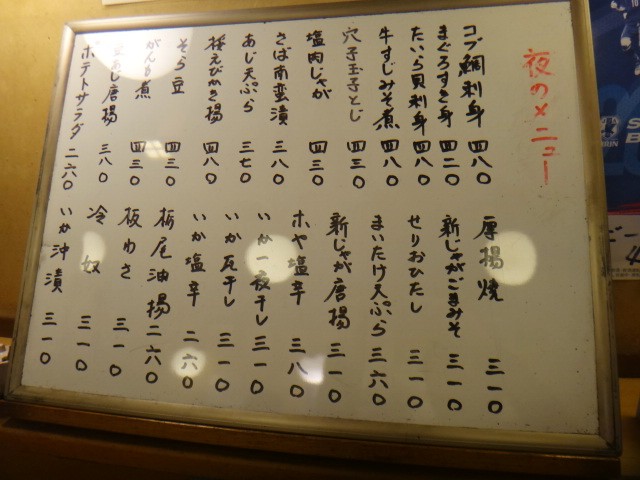 夜のメニュー
コブ鯛刺身 四八〇
まぐろすき身 四二〇
たいら貝刺身 四八〇
牛すじみそ煮 四八〇
穴子玉子とじ 四三〇
塩肉じゃが 四三〇
さば南蛮漬 三八〇
あじ天ぷら 三七〇
桜えびかき揚 四八〇
そら豆 四三〇
がんも煮 四三〇
あじ唐揚 三八〇
ポテトサラダ 二六〇
厚揚焼 三一〇
新じゃがごまみそ 三一〇
せりおひたし 三一〇
まいたけ天ぷら 三六〇
新じゃが唐揚 三一〇
ホヤ塩辛 三八〇
いか一夜干し 三一〇
いか丸干し 三一〇
いか塩辛 二六〇
栃尾油揚 二六〇
板わさ 三一〇
冷奴 三一〇
いか沖漬 三一〇